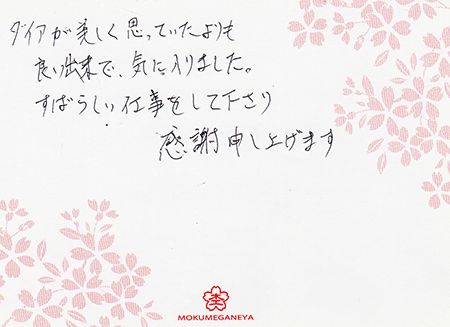 ダイアが美しく思っていたよりも
良い出来で、気に入りました。
すばらしい仕事をして下さり
感謝申し上げます
杢
MOKUMEGANEYA